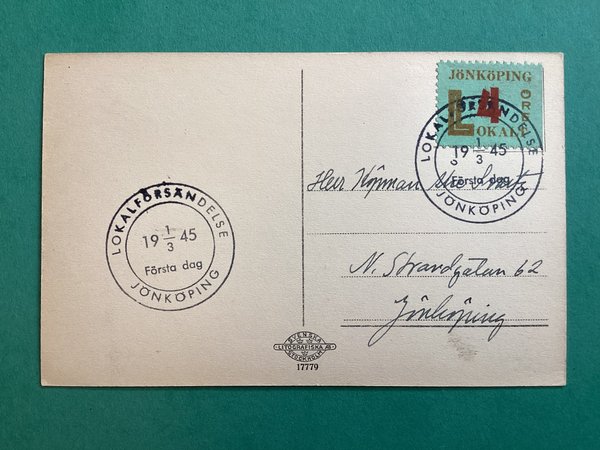 JÖNKÖPING
4
ÖRE
LOKAL
LOKALFÖRSÄNDELSE
19 1/3 45
Första dag
JÖNKÖPING
Herr Köpman
N. Strandgatan 62
Jönköping
LOKALFÖRSÄNDELSE
19 1/3 45
Första dag
JÖNKÖPING
SVENSKA
LITOGRAFISKA AB
STOCKHOLM
17779